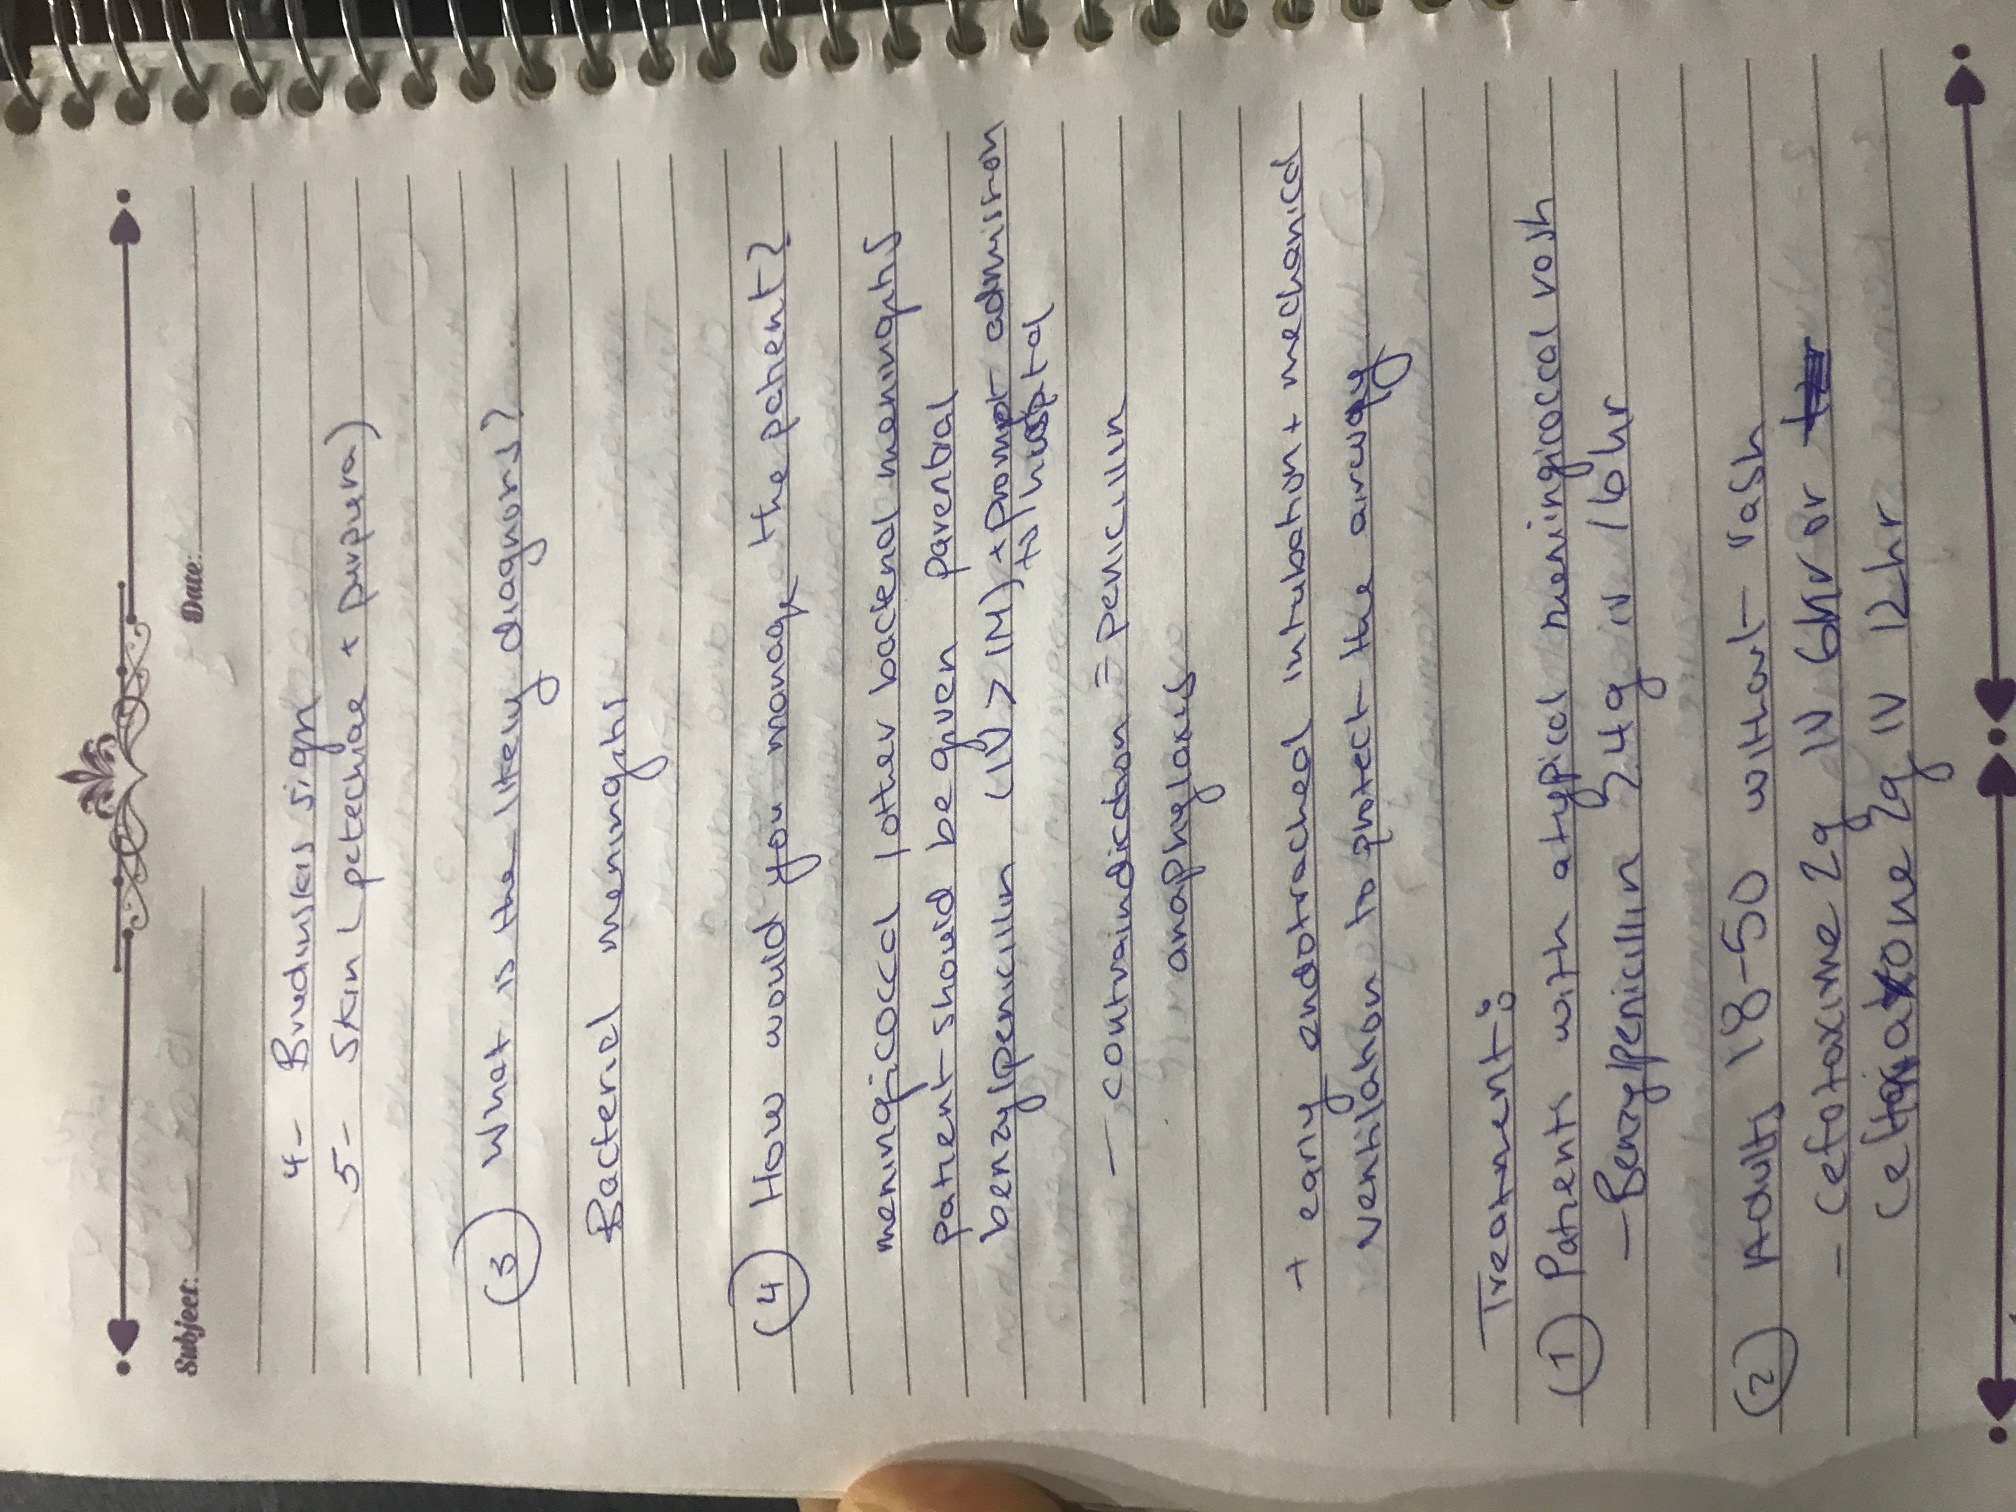 Subject:
Date:
4- Brudunskis sign
5- Skin (petechiae + purpura)
(3) What is the likely diagnosis?
Bacterial meningitis
(4) How would you manage the patient?
meningicoccal / other bacterial meningitis
patient should be given parentral
benzylpenicillin (IV > IM) + prompt admission
to hospital
- contraindication = penicillin
anaphylaxis
+ early endotracheal intubation + mechanical
ventilation to protect the airway
Treatment:
(1) Patients with atypical meningicoccal rash
- Benzylpenicillin 2.4g iv /6hr
(2) Adults 18-50 without rash
- cefotaxime 2g IV 6hr or
ceftriaxone 2g IV 12hr